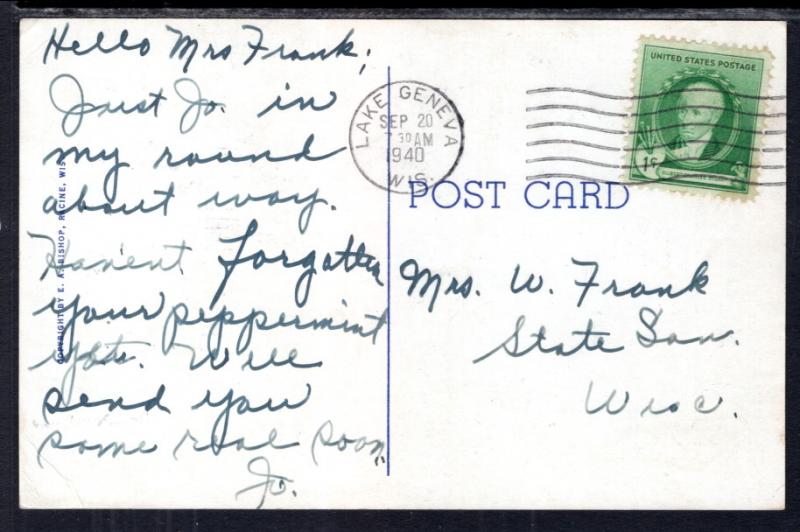 Hello Mrs Frank,
Just Jo. in
my round
about way.
Haven't forgotten
your peppermint
yet. Will
send you
some real soon.
Jo.
COPYRIGHT BY E. A. BISHOP, RACINE, WIS.
LAKE GENEVA
SEP 20
7 30 AM
1940
WIS.
UNITED STATES POSTAGE
1¢
POST CARD
Mrs. W. Frank
State San.
Wisc.